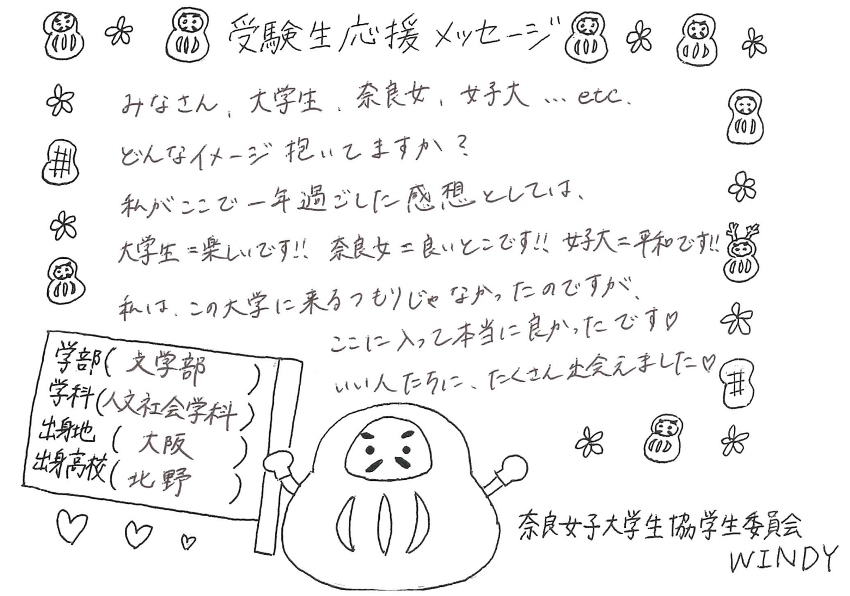 受験生応援メッセージ
みなさん、大学生、奈良女、女子大…etc.
どんなイメージ抱いてますか?
私がここで一年過ごした感想としては、
大学生=楽しいです!! 奈良女=良いとこです!! 女子大=平和です!!
私は、この大学に来るつもりじゃなかったのですが、
ここに入って本当に良かったです♡
いい人たちに、たくさん出会えました♡
学部(文学部)
学科(人文社会学科)
出身地(大阪)
出身高校(北野)
奈良女子大学生協学生委員会
WINDY